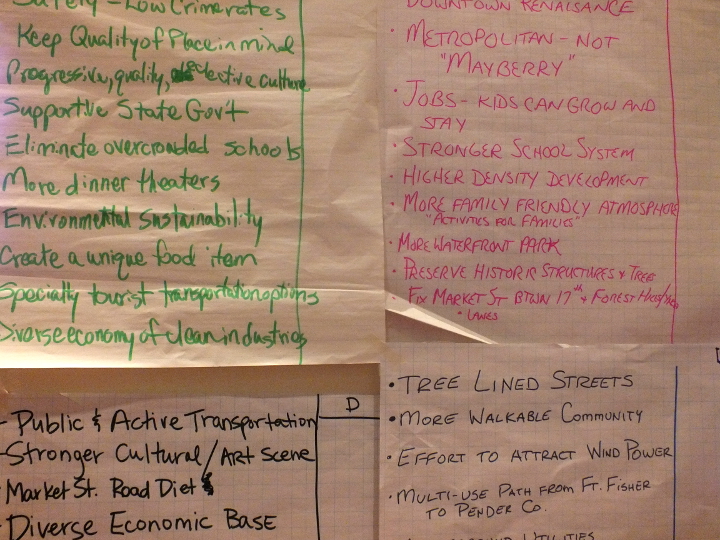 Safety - Low Crime rates
Keep Quality of Place in mind
Progressive, quality, effective culture
Supportive State Gov't
Eliminate overcrowded schools
More dinner theaters
Environmental Sustainability
Create a unique food item
Specialty tourist transportation options
Diverse economy of clean industries
DOWNTOWN RENAISANCE
• METROPOLITAN - NOT
"MAYBERRY"
• JOBS - KIDS CAN GROW AND
STAY
• STRONGER SCHOOL SYSTEM
• HIGHER DENSITY DEVELOPMENT
• MORE FAMILY FRIENDLY ATMOSPHERE
"ACTIVITIES FOR FAMILIES"
• MORE WATERFRONT PARK
• PRESERVE HISTORIC STRUCTURES & TREE
• FIX MARKET ST BTWN 17th & FOREST HILLS
• LANES
- Public & Active Transportation
- Stronger Cultural / ART SCENE
- Market St. Road Diet
- DIVERSE ECONOMIC BASE
D
• TREE LINED STREETS
• MORE WALKABLE COMMUNITY
• EFFORT TO ATTRACT WIND POWER
• MULTI-USE PATH FROM FT. FISHER
TO PENDER CO.
UTILITIES